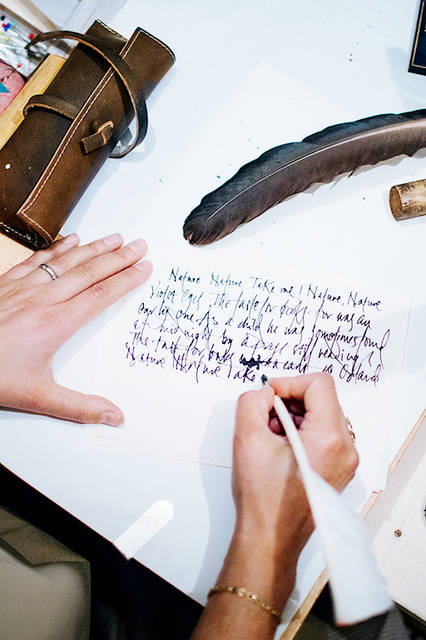 Nature Nature Take me ! Nature, Nature
Violet Eyes, The taste for books was an
early one. As a child he was sometimes found
at midnight by a page still reading
The taste for books Orlando
Nature Nature Take